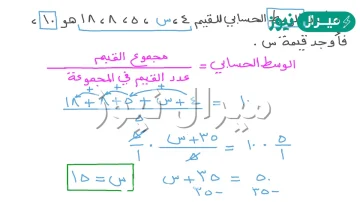 ميزال نيوز
الحسابي للقيم ٤، س، ٥، ٨، ١٨ هو ١٠،
فأوجد قيمة س.
الوسط الحسابي = مجموع القيم / عدد القيم في المجموعة
١٠ = ٤ + س + ٥ + ٨ + ١٨ / ٥
٥/١ · ١٠ = س + ٣٥ / ٥ · ٥/١
٥٠ = س + ٣٥
-٣٥ -٣٥
س = ١٥
ميزال نيوز